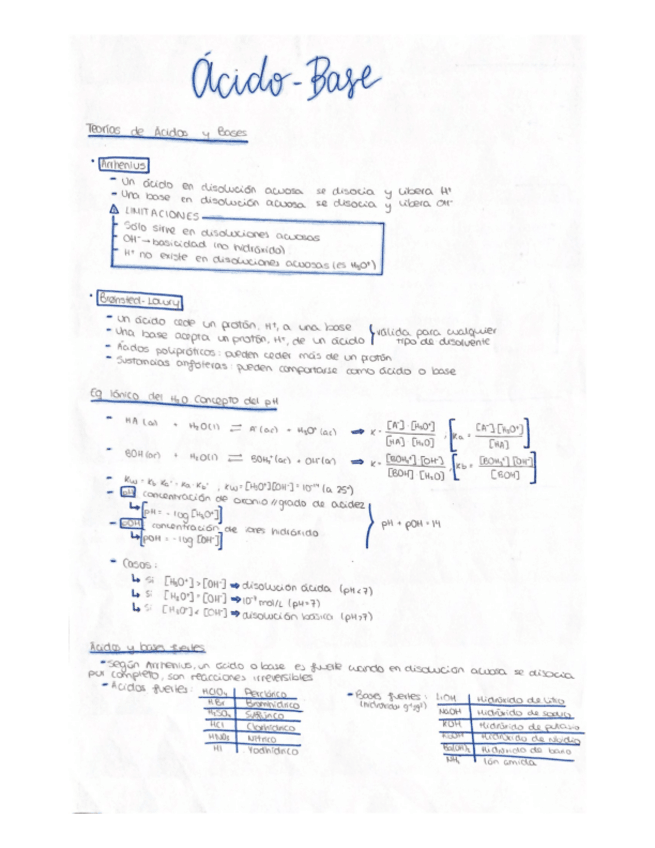 Ácido-Base
Teorías de Ácidos y Bases
· Arrhenius
- Un ácido en disolución acuosa se disocia y libera H⁺
- Una base en disolución acuosa se disocia y libera OH⁻
⚠ LIMITACIONES
- Sólo sirve en disoluciones acuosas
- OH⁻ → basicidad (no hidróxido)
- H⁺ no existe en disoluciones acuosas (es H₃O⁺)
· Brønsted-Lowry
- Un ácido cede un protón, H⁺, a una base
- Una base acepta un protón, H⁺, de un ácido
} válida para cualquier tipo de disolvente
- Ácidos polipróticos: pueden ceder más de un protón
- Sustancias anfóteras: pueden comportarse como ácido o base
Eq Iónico del H₂O Concepto del pH
- HA (ac) + H₂O(l) ⇌ A⁻(ac) + H₃O⁺(ac) ➡ K = [A⁻]·[H₃O⁺] / [HA] [H₂O] , [Ka = [A⁻][H₃O⁺] / [HA]]
- BOH(ac) + H₂O(l) ⇌ BOH₂⁺(ac) + OH⁻(ac) ➡ K = [BOH₂⁺][OH⁻] / [BOH] [H₂O] , [Kb = [BOH₂⁺][OH⁻] / [BOH]]
- Kw = [H₃O⁺][OH⁻] = 10⁻¹⁴ (a 25°)
- pH concentración de oxonio // grado de acidez
↳ [pH = - log [H₃O⁺]]
- pOH concentración de iones hidróxido
↳ [pOH = - log [OH⁻]]
} pH + pOH = 14
- Casos:
↳ Si [H₃O⁺] > [OH⁻] ➡ disolución ácida (pH<7)
↳ Si [H₃O⁺] = [OH⁻] ➡ 10⁻⁷ mol/L (pH=7)
↳ Si [H₃O⁺] < [OH⁻] ➡ disolución básica (pH>7)
Ácidos y bases fuertes
- Según Arrhenius, un ácido o base es fuerte cuando en disolución acuosa se disocia
por completo, son reacciones irreversibles
- Ácidos fuertes: HClO₄ Perclórico
HBr Bromhídrico
H₂SO₄ Sulfúrico
HCl Clorhídrico
HNO₃ Nítrico
HI Yodhídrico
- Bases fuertes: LiOH Hidróxido de litio
NaOH Hidróxido de sodio
KOH Hidróxido de potasio
RbOH Hidróxido de rubidio
Ba(OH)₂ Hidróxido de bario
Ion amida